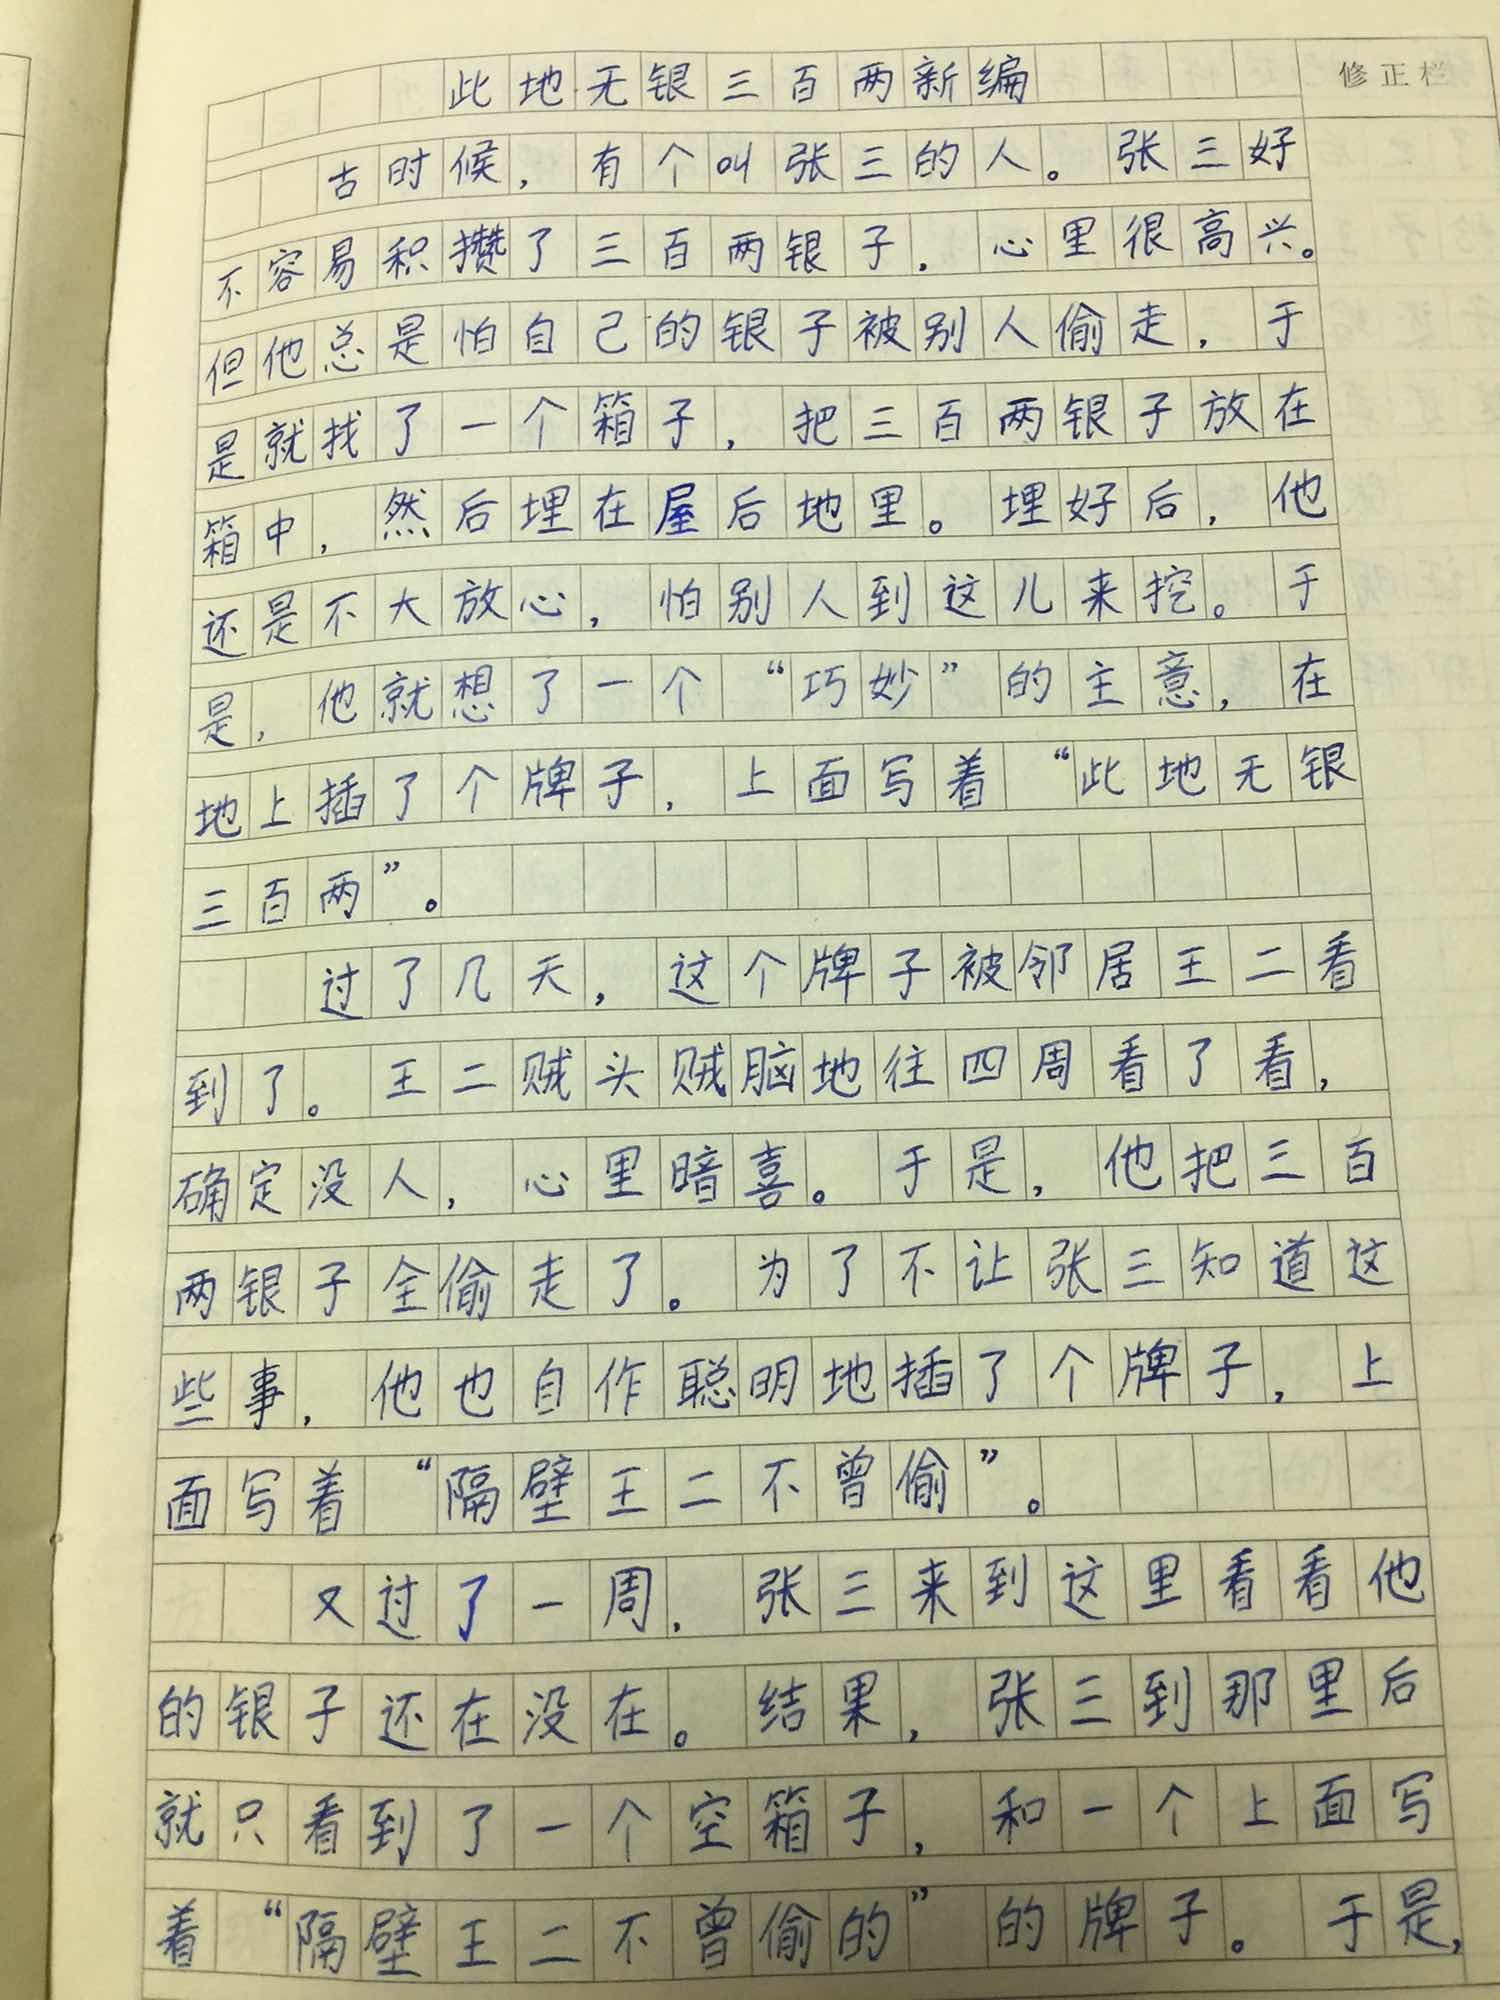 此地无银三百两新编
修正栏
古时候，有个叫张三的人。张三好
不容易积攒了三百两银子，心里很高兴。
但他总是怕自己的银子被别人偷走，于
是就找了一个箱子，把三百两银子放在
箱中，然后埋在屋后地里。埋好后，他
还是不大放心，怕别人到这儿来挖。于
是，他就想了一个“巧妙”的主意，在
地上插了个牌子，上面写着“此地无银
三百两”。
过了几天，这个牌子被邻居王二看
到了。王二贼头贼脑地往四周看了看，
确定没人，心里暗喜。于是，他把三百
两银子全偷走了。为了不让张三知道这
些事，他也自作聪明地插了个牌子，上
面写着“隔壁王二不曾偷”。
又过了一周，张三来到这里看看他
的银子还在没在。结果，张三到那里后
就只看到了一个空箱子，和一个上面写
着“隔壁王二不曾偷的”的牌子。于是，